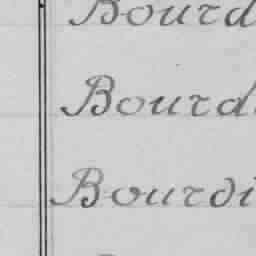 Bourd
Bourd
Bourdi